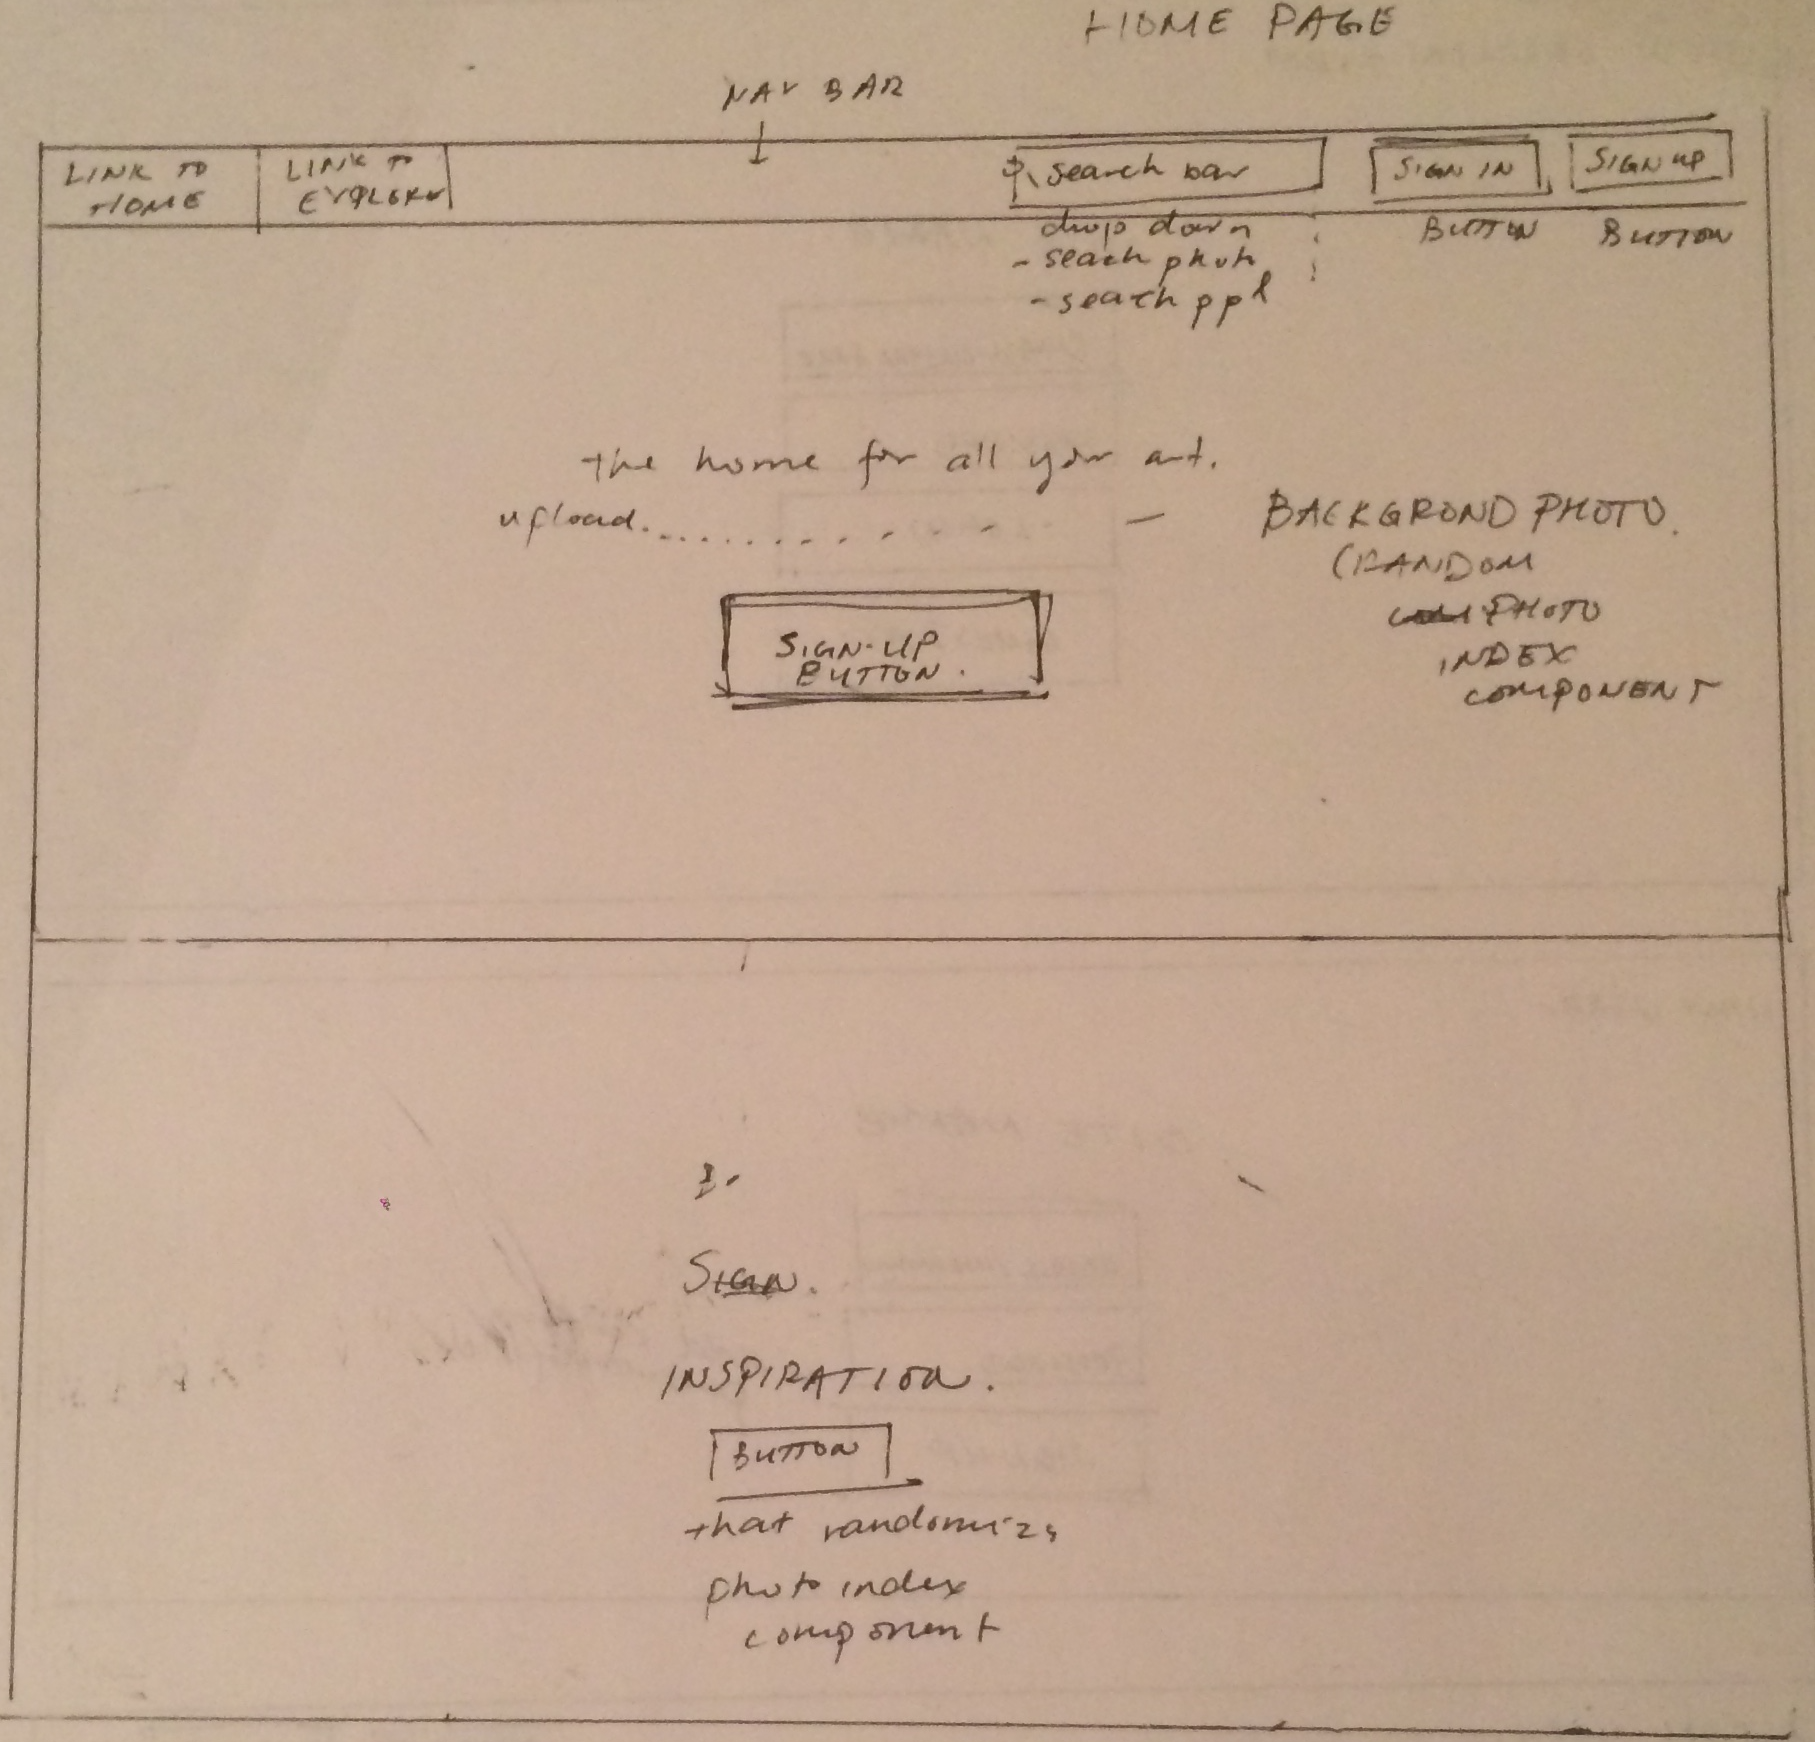 HOME PAGE
NAV BAR
LINK TO
HOME
LINK TO
EXPLORE
search bar
SIGN IN
SIGN UP
drop down
- seach photo
- search ppl
BUTTON
BUTTON
the home for all your art.
upload.
BACKGROND PHOTO.
(RANDOM
PHOTO
INDEX
COMPONENT
SIGN-UP
BUTTON.
SIGN.
INSPIRATION.
BUTTON
that randomizes
photo index
component